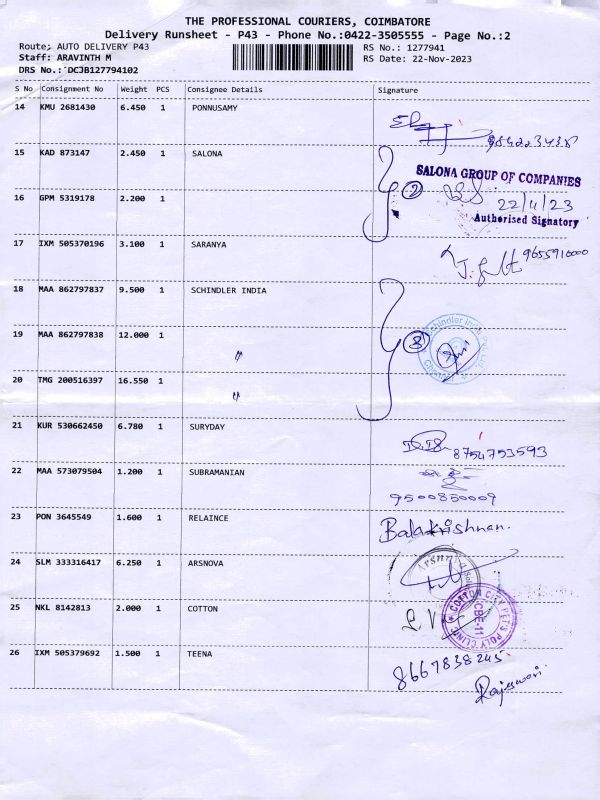 THE PROFESSIONAL COURIERS, COIMBATORE
Delivery Runsheet - P43 - Phone No.:0422-3505555 - Page No.:2
Route: AUTO DELIVERY P43
RS No.: 1277941
Staff: ARAVINTH M
RS Date: 22-Nov-2023
DRS No.: DCJB127794102
S No Consignment No Weight PCS Consignee Details Signature
14 KMU 2681430 6.450 1 PONNUSAMY
15 KAD 873147 2.450 1 SALONA
2
SALONA GROUP OF COMPANIES
16 GPM 5319178 2.200 1
22/11/23
Authorised Signatory
17 IXM 505370196 3.100 1 SARANYA
18 MAA 862797837 9.500 1 SCHINDLER INDIA
19 MAA 862797838 12.000 1 "
3
20 TMG 200516397 16.550 1 "
21 KUR 530662450 6.780 1 SURYDAY
8754753593
22 MAA 573079504 1.200 1 SUBRAMANIAN
9500850009
23 PON 3645549 1.600 1 RELAINCE
Balakrishnan.
24 SLM 333316417 6.250 1 ARSNOVA
25 NKL 8142813 2.000 1 COTTON
COTTON CITY PETS POLY CLINIC
CBE-11
26 IXM 505379692 1.500 1 TEENA
8667838245
Rajeswari